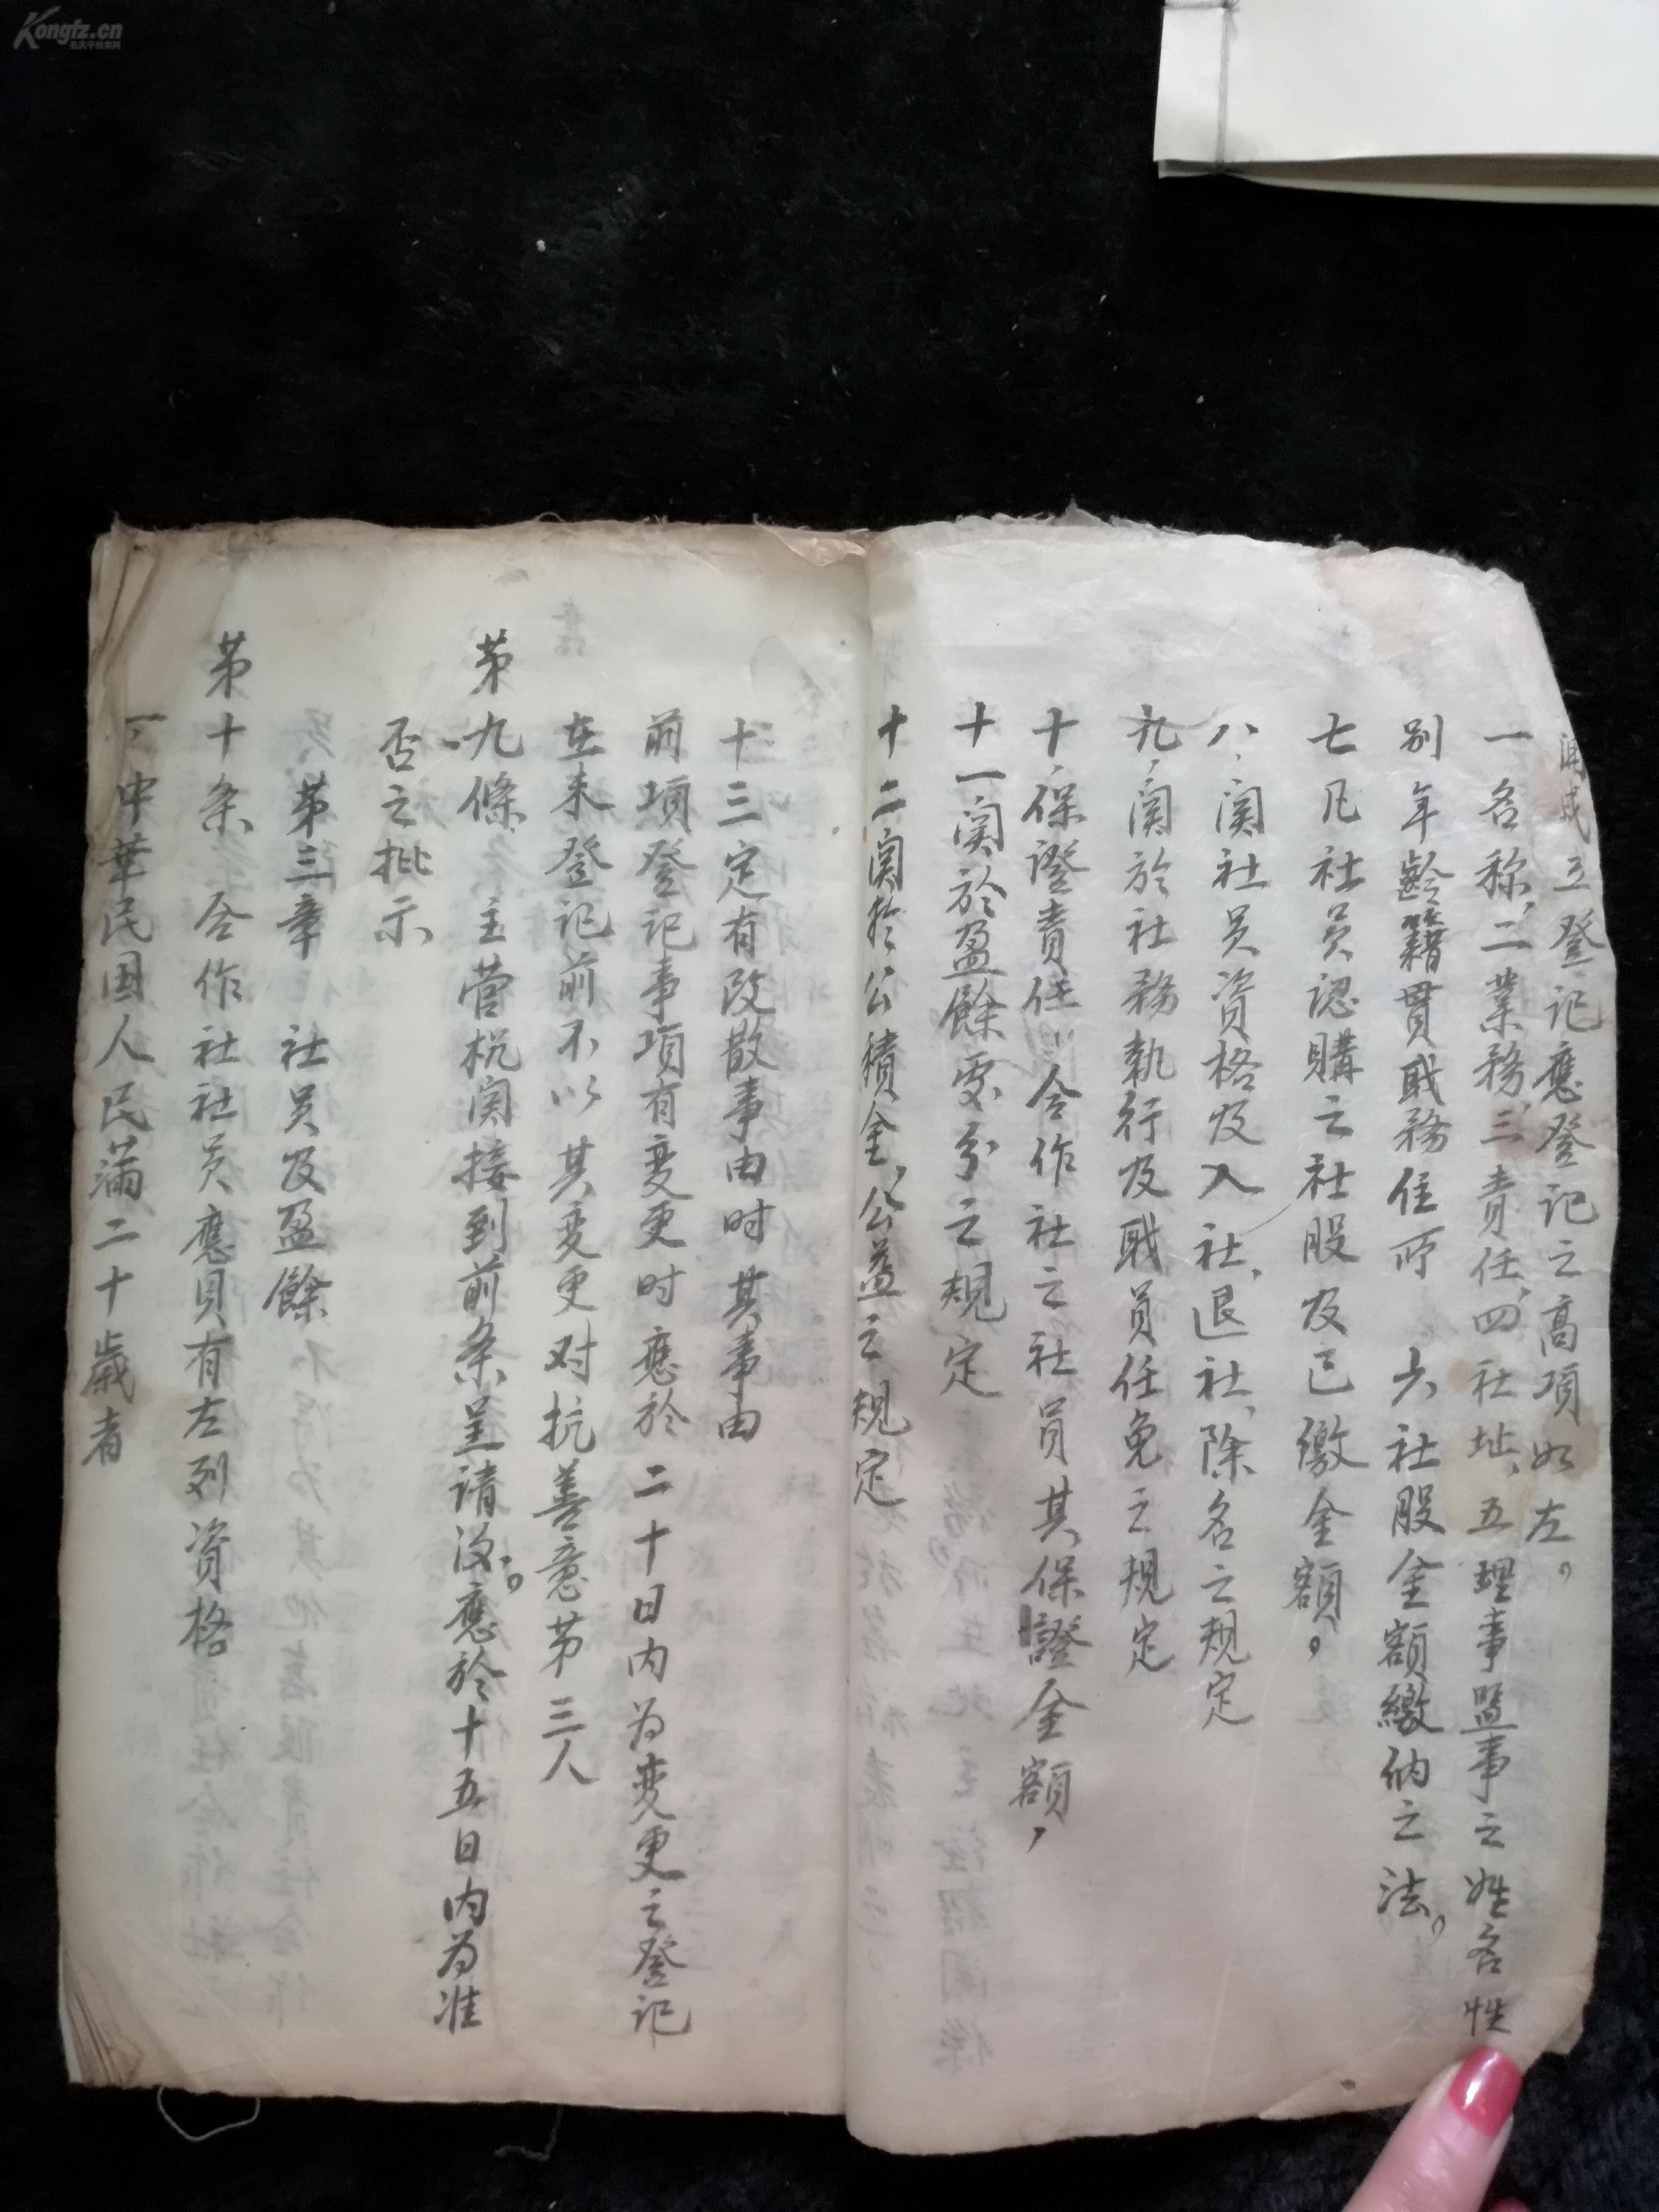 成立登记應登记之高項如左。
一名称、二業務、三責任、四社址、五理事監事之姓名性
别年齡籍貫職務住所 六社股金額繳纳之法。
七凡社员認購之社股及已繳金額。
八、関社员资格及入社、退社、除名之规定
九、関於社務執行及職員任免之规定
十、保證責任合作社之社員其保證金額，
十一関於盈餘處分之规定
十二関於公積金、公益之规定
十三定有改散事由时其事由
前項登记事項有変更时應於二十日内为变更之登记
在未登记前不以其変更对抗善意第三人
第九條、主管机関接到前条呈请後。應於十五日内为准
否之批示
第三章 社员及盈餘
第十条、合作社社员應具有左列资格
一、中華民国人民满二十歲者
Kongfz.cn